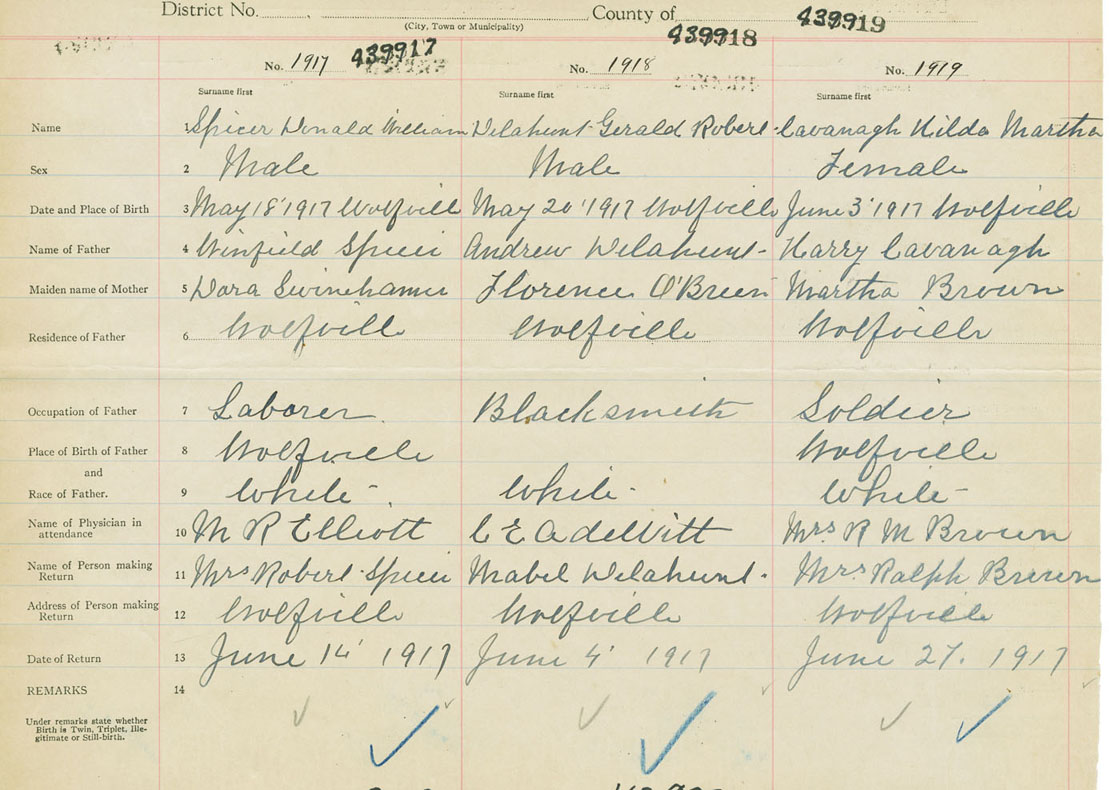 District No. County of
(City, Town or Municipality)
439917 439918 439919
No. 1917 No. 1918 No. 1919
Surname first Surname first Surname first
Name 1 Spicer Donald William Delahunt Gerald Robert Cavanagh Hilda Martha
Sex 2 Male Male Female
Date and Place of Birth 3 May 18 1917 Wolfville May 20 1917 Wolfville June 3 1917 Wolfville
Name of Father 4 Winfield Spicer Andrew Delahunt Harry Cavanagh
Maiden name of Mother 5 Dora Swinehamer Florence O'Brien Martha Brown
Residence of Father 6 Wolfville Wolfville Wolfville
Occupation of Father 7 Laborer Blacksmith Soldier
Place of Birth of Father 8 Wolfville Wolfville
and
Race of Father. 9 White White White
Name of Physician in attendance 10 M R Elliott C E A deWitt Mrs R M Brown
Name of Person making Return 11 Mrs Robert Spicer Mabel Delahunt. Mrs Ralph Brown
Address of Person making Return 12 Wolfville Wolfville Wolfville
Date of Return 13 June 14 1917 June 4 1917 June 27. 1917
REMARKS 14
Under remarks state whether
Birth is Twin, Triplet, Ille-
gitimate or Still-birth.